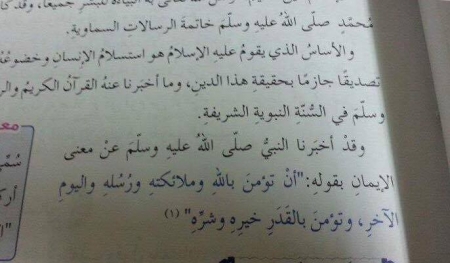 محمّدٍ صلّى اللهُ عليهِ وسلّمَ خاتمةَ الرسالاتِ السماويةِ.
والأساسُ الذي يقومُ عليهِ الإسلامُ هو استسلامُ الإنسانِ وخضوعُهُ
تصديقًا جازمًا بحقيقةِ هذا الدينِ، وما أخبرَنا عنهُ القرآنُ الكريمُ
وسلّمَ في السُّنَّةِ النبويةِ الشريفةِ.
وقدْ أخبرَنا النبيُّ صلّى اللهُ عليهِ وسلّمَ عنْ معنى
الإيمانِ بقولِهِ: "أنْ تؤمنَ باللهِ وملائكتِهِ ورُسُلِهِ واليومِ
الآخرِ، وتؤمنَ بالقَدَرِ خيرِهِ وشرِّهِ" (١)